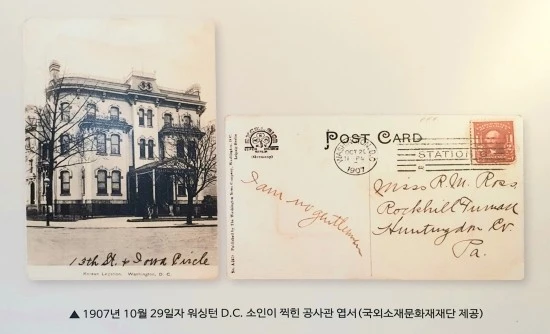 13th St. & Iowa Circle
Korean Legation. Washington, D. C.
POST CARD
WASHINGTON, D.C.
OCT 29
1907
STATION
I am no gentleman
Miss R. M. Ross
Rockhill Furnace
Huntingdon Co.
Pa.
▲ 1907년 10월 29일자 워싱턴 D.C. 소인이 찍힌 공사관 엽서(국외소재문화재재단 제공)